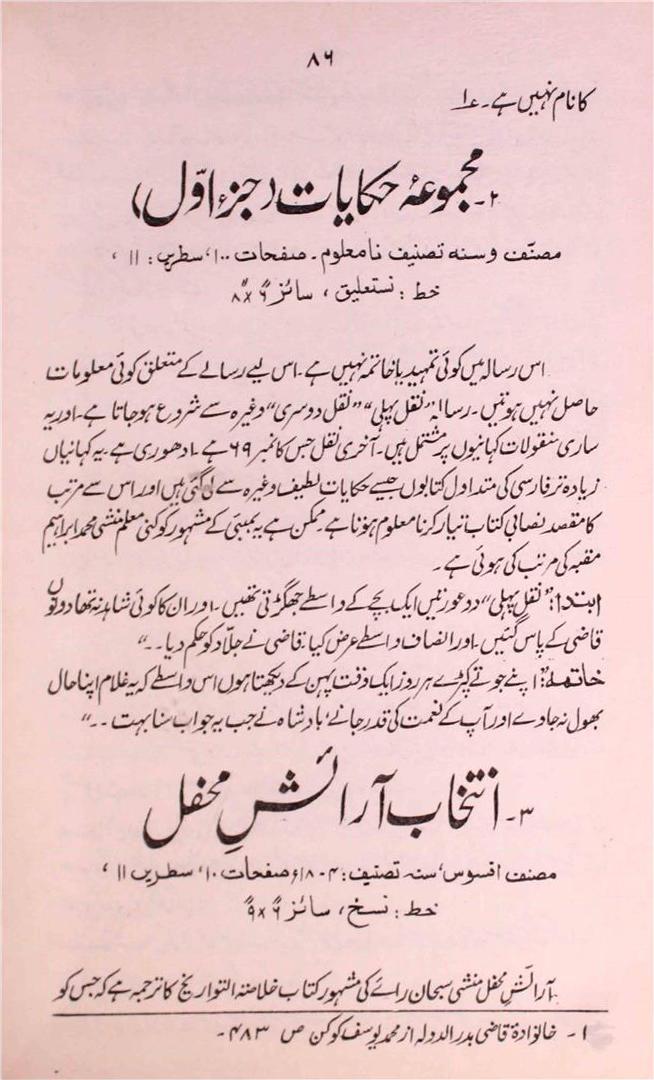 ۸۶
کا نام نہیں ہے۔ ۱؎
۲۔ مجموعۂ حکایات (جزء اوّل)
مصنّف و سنہ تصنیف نامعلوم۔ صفحات ۱۰۰، سطریں: ۱۱،
خط: نستعلیق، سائز ۶" × ۸"
اس رسالہ میں کوئی تمہید یا خاتمہ نہیں ہے۔ اس لیے رسالے کے متعلق کوئی معلومات
حاصل نہیں ہوتیں۔ رسالہ "نقل پہلی" "نقل دوسری" وغیرہ سے شروع ہوجاتا ہے۔ اور یہ
ساری منقولات کہانیوں پر مشتمل ہیں۔ آخری نقل جس کا نمبر ۶۹ ہے۔ ادھوری ہے۔ یہ کہانیاں
زیادہ تر فارسی کی متداول کتابوں جیسے حکایات لطیف وغیرہ سے لی گئی ہیں اور اس سے مرتب
کا مقصد نصابی کتاب تیار کرنا معلوم ہوتا ہے۔ ممکن ہے یہ بمبئی کے مشہور کوکنی معلم منشی محمد ابراہیم
مقبہ کی مرتب کی ہوئی ہے۔
ابتدا: "نقل پہلی" دو عورتیں ایک بچے کے واسطے جھگڑتی تھیں۔ اور ان کا کوئی شاہد نہ تھا دونوں
قاضی کے پاس گئیں۔ اور انصاف واسطے عرض کیا۔ قاضی نے جلّاد کو حکم دیا۔۔"
خاتمہ: "اپنے جوتے کپڑے ہر روز ایک وقت پہن کے دیکھتا ہوں اس واسطے کہ یہ غلام اپنا حال
بھول نہ جاوے اور آپ کے نعمت کی قدر جانے، بادشاہ نے جب یہ جواب سنا بہت۔۔"
۳۔ انتخاب آرائشِ محفل
مصنف افسوس، سنہ تصنیف: ۱۸۰۴ء صفحات ۱۰، سطریں ۱۱،
خط: نسخ، سائز ۶" × ۹"
آرائش محفل منشی سبحان رائے کی مشہور کتاب خلاصۃ التواریخ کا ترجمہ ہے کہ جس کو
۱۔ خانوادۂ قاضی بدرالدولہ از محمد یوسف کوکن ص ۴۸۳۔